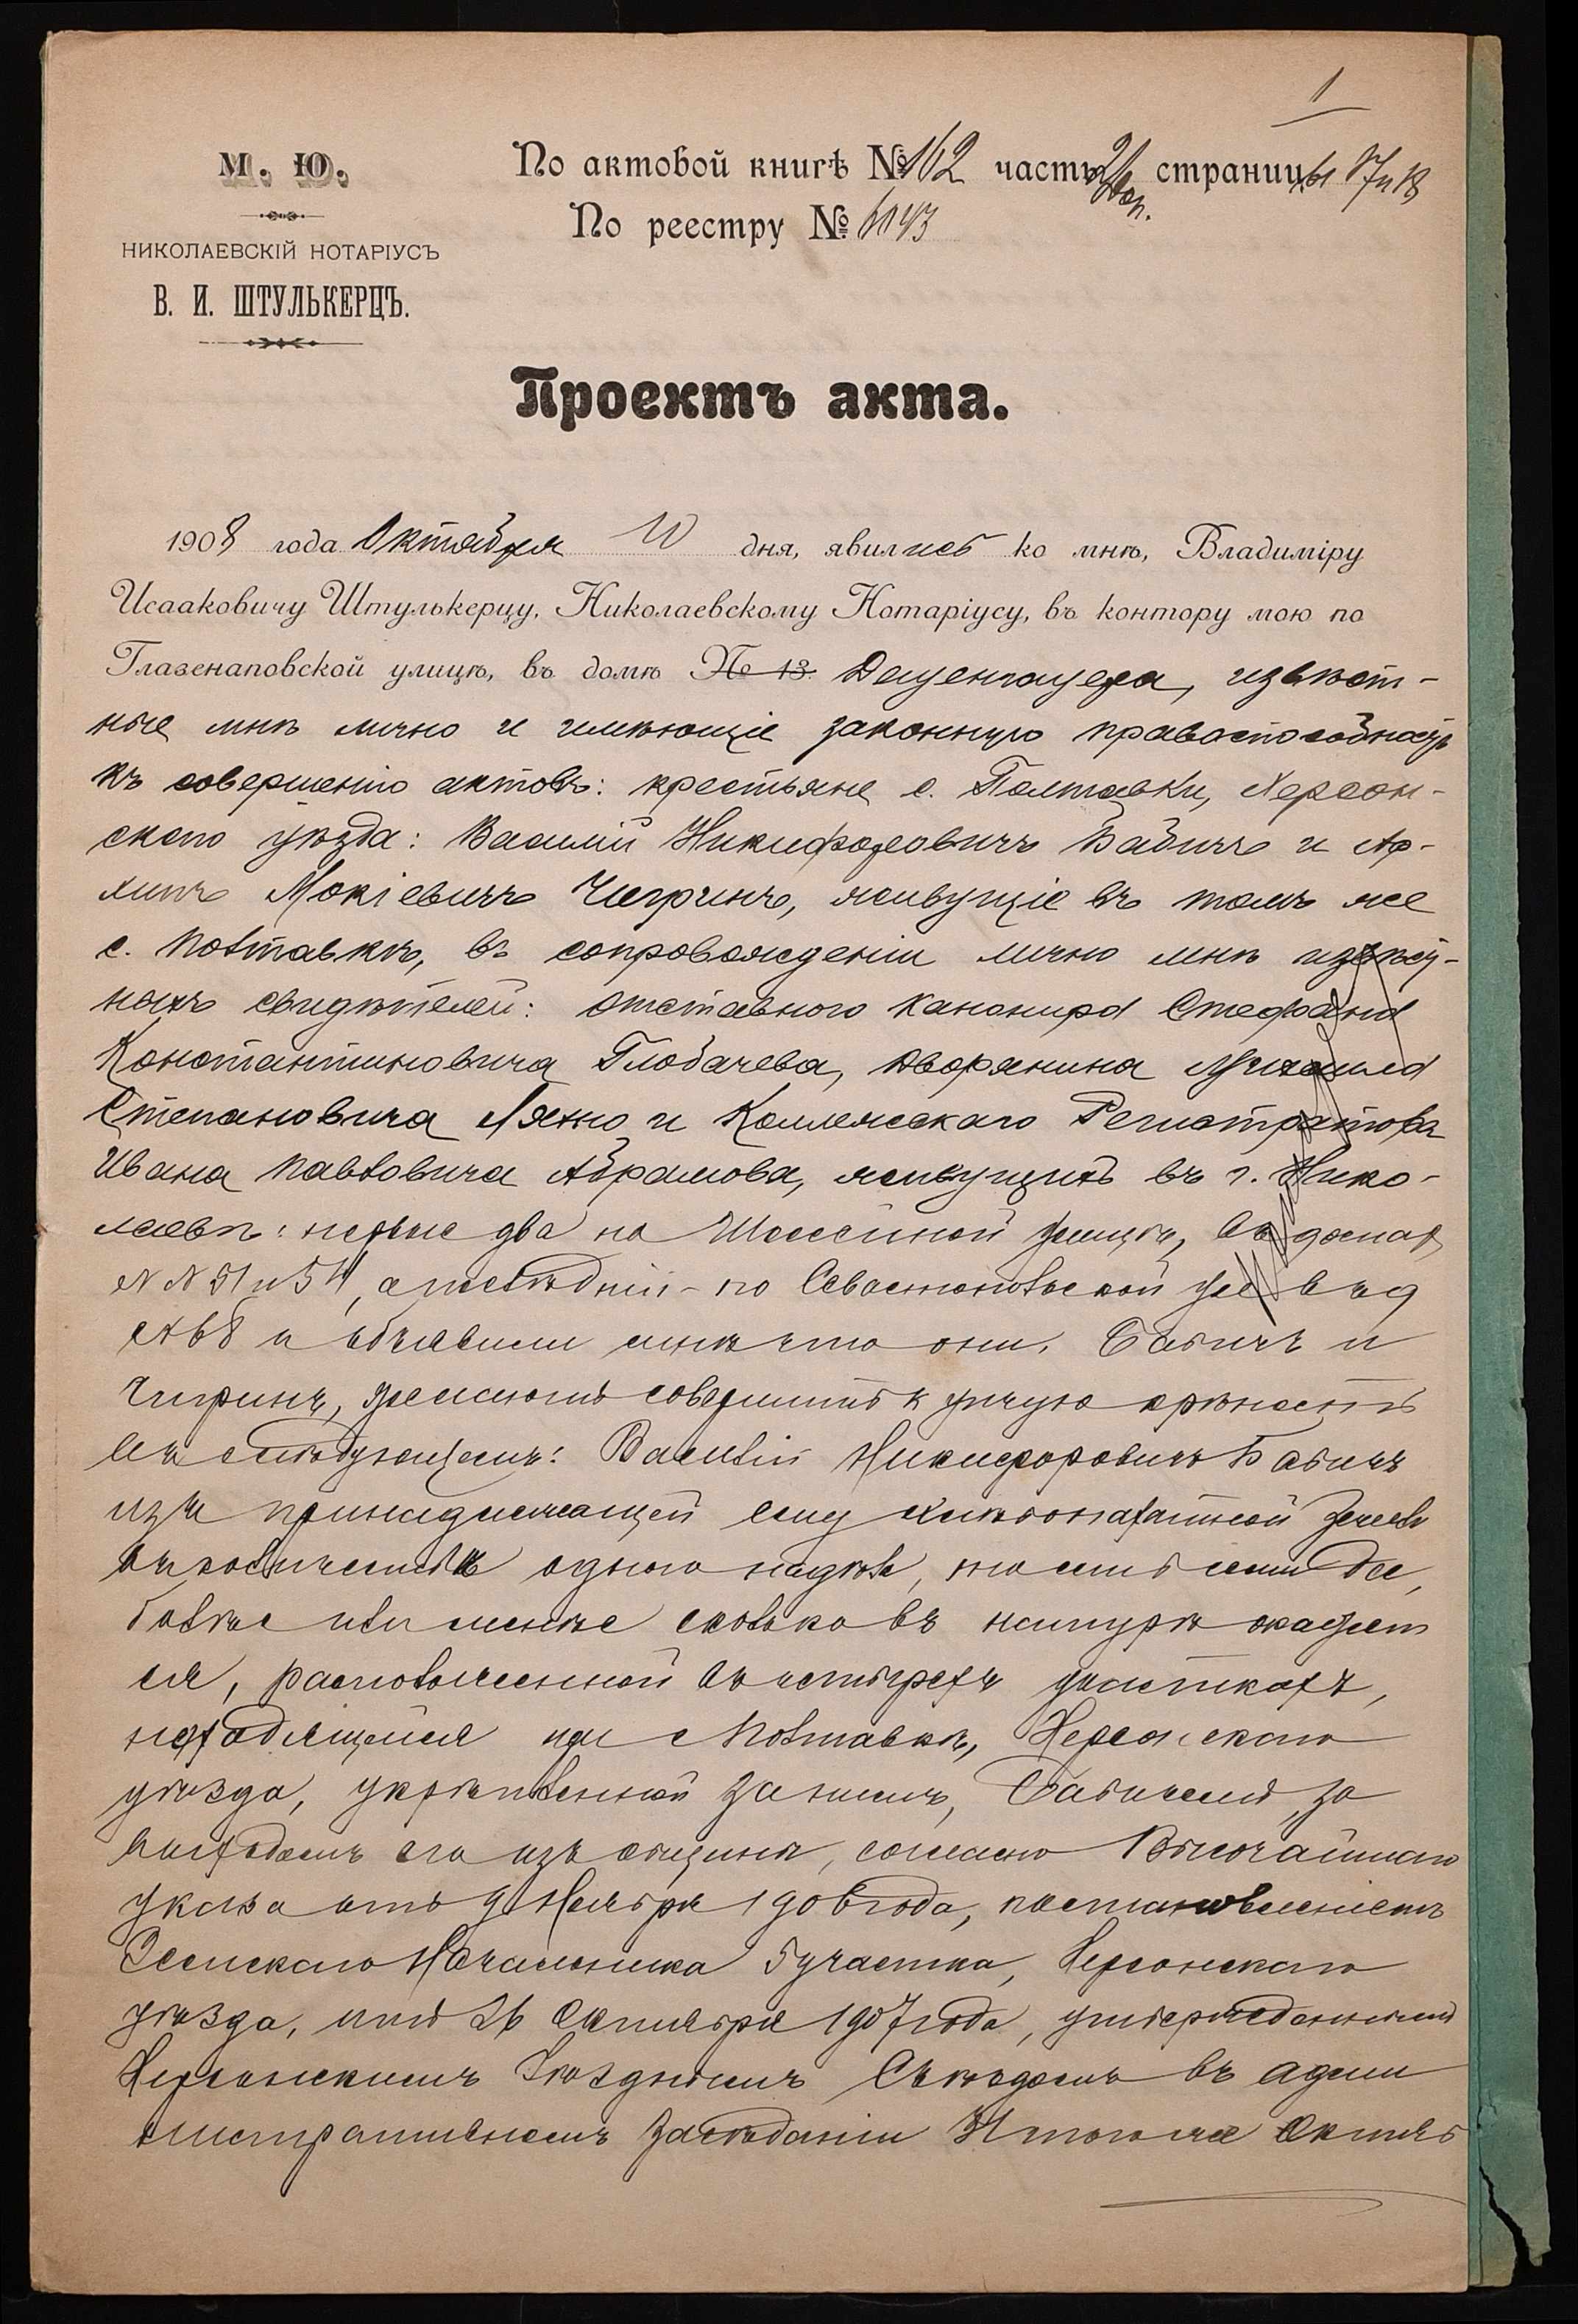 1
М. Ю.
НИКОЛАЕВСКІЙ НОТАРІУСЪ
В. И. ШТУЛЬКЕРЦЪ.
По актовой книгѣ № 162 часть 2 страницы 17 и 18
По реестру № 6143
Проектъ акта.
1908 года Октября 10 дня, явились ко мнѣ, Владиміру
Исааковичу Штулькерцу, Николаевскому Нотаріусу, въ контору мою по
Глазенаповской улицѣ, въ домѣ № 13. извѣст-
ные мнѣ лично и имѣющіе законную правоспособность
къ совершенію актовъ: крестьяне с. Полтавки, Херсон-
скаго уѣзда: Василій Никифоровичъ Бабичъ и Ар-
хипъ Мокіевичъ Чигринъ, живущіе въ томъ же
с. Полтавкѣ, въ сопровожденіи лично мнѣ извѣст-
ныхъ свидѣтелей: отставного канонира Стефана
Константиновича Глобачева, дворянина Михаила
Степановича Ляхно и Коллежскаго Регистратора
Ивана Павловича Абрамова, живущихъ въ г. Нико-
лаевѣ: первые два на Шоссейной улицѣ, въ домахъ
№ № 51 и 54, а послѣдній - по Севастопольской ул въ д
№ 68 и объявили мнѣ что они, Бабичъ и
Чигринъ, желаютъ совершить купчую крѣпость
въ слѣдующемъ: Василій Никифоровичъ Бабичъ
изъ принадлежащей ему земли
въ количествѣ одного надѣла, десят
болѣе или менѣе сколько въ натурѣ окажет
ся, расположенной въ четырехъ участкахъ,
находящейся при с Полтавкѣ, Херсонскаго
уѣзда, укрѣпленной за нимъ, Бабичемъ, за
выходомъ его изъ общины, согласно Высочайшаго
указа отъ 9 Ноября 1906 года, постановленіемъ
Земскаго Начальника 5 участка, Херсонскаго
уѣзда, отъ 26 Октября 1907 года, утвержденнымъ
Херсонскимъ Уѣзднымъ Съѣздомъ въ адми
нистративномъ засѣданіи 31 того же Октяб